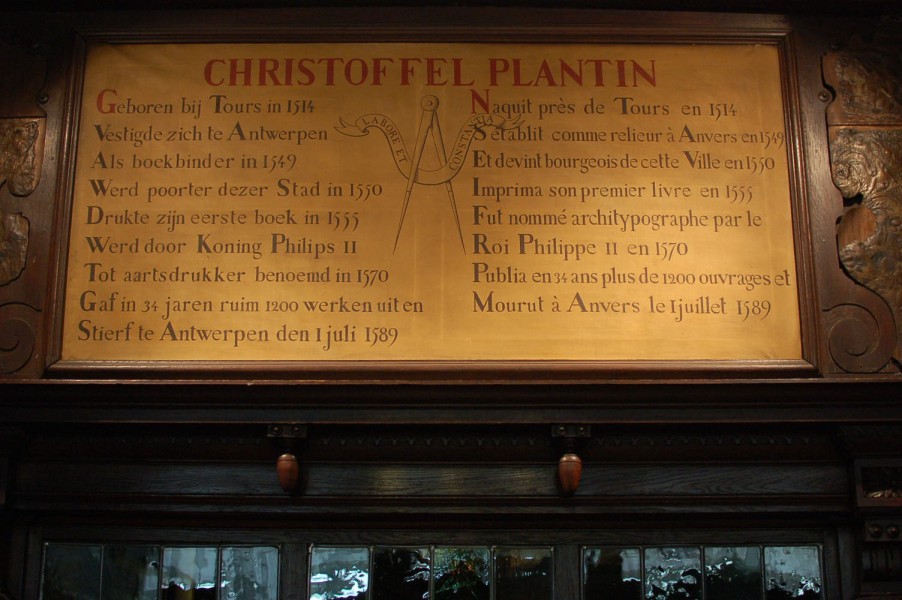 CHRISTOFFEL PLANTIN
Geboren bij Tours in 1514
Vestigde zich te Antwerpen
Als boekbinder in 1549
Werd poorter dezer Stad in 1550
Drukte zijn eerste boek in 1555
Werd door Koning Philips II
Tot aartsdrukker benoemd in 1570
Gaf in 34 jaren ruim 1200 werken uit en
Stierf te Antwerpen den 1 juli 1589
LABORE ET CONSTANTIA
Naquit près de Tours en 1514
S'établit comme relieur à Anvers en 1549
Et devint bourgeois de cette Ville en 1550
Imprima son premier livre en 1555
Fut nommé architypographe par le
Roi Philippe II en 1570
Publia en 34 ans plus de 1200 ouvrages et
Mourut à Anvers le 1 juillet 1589